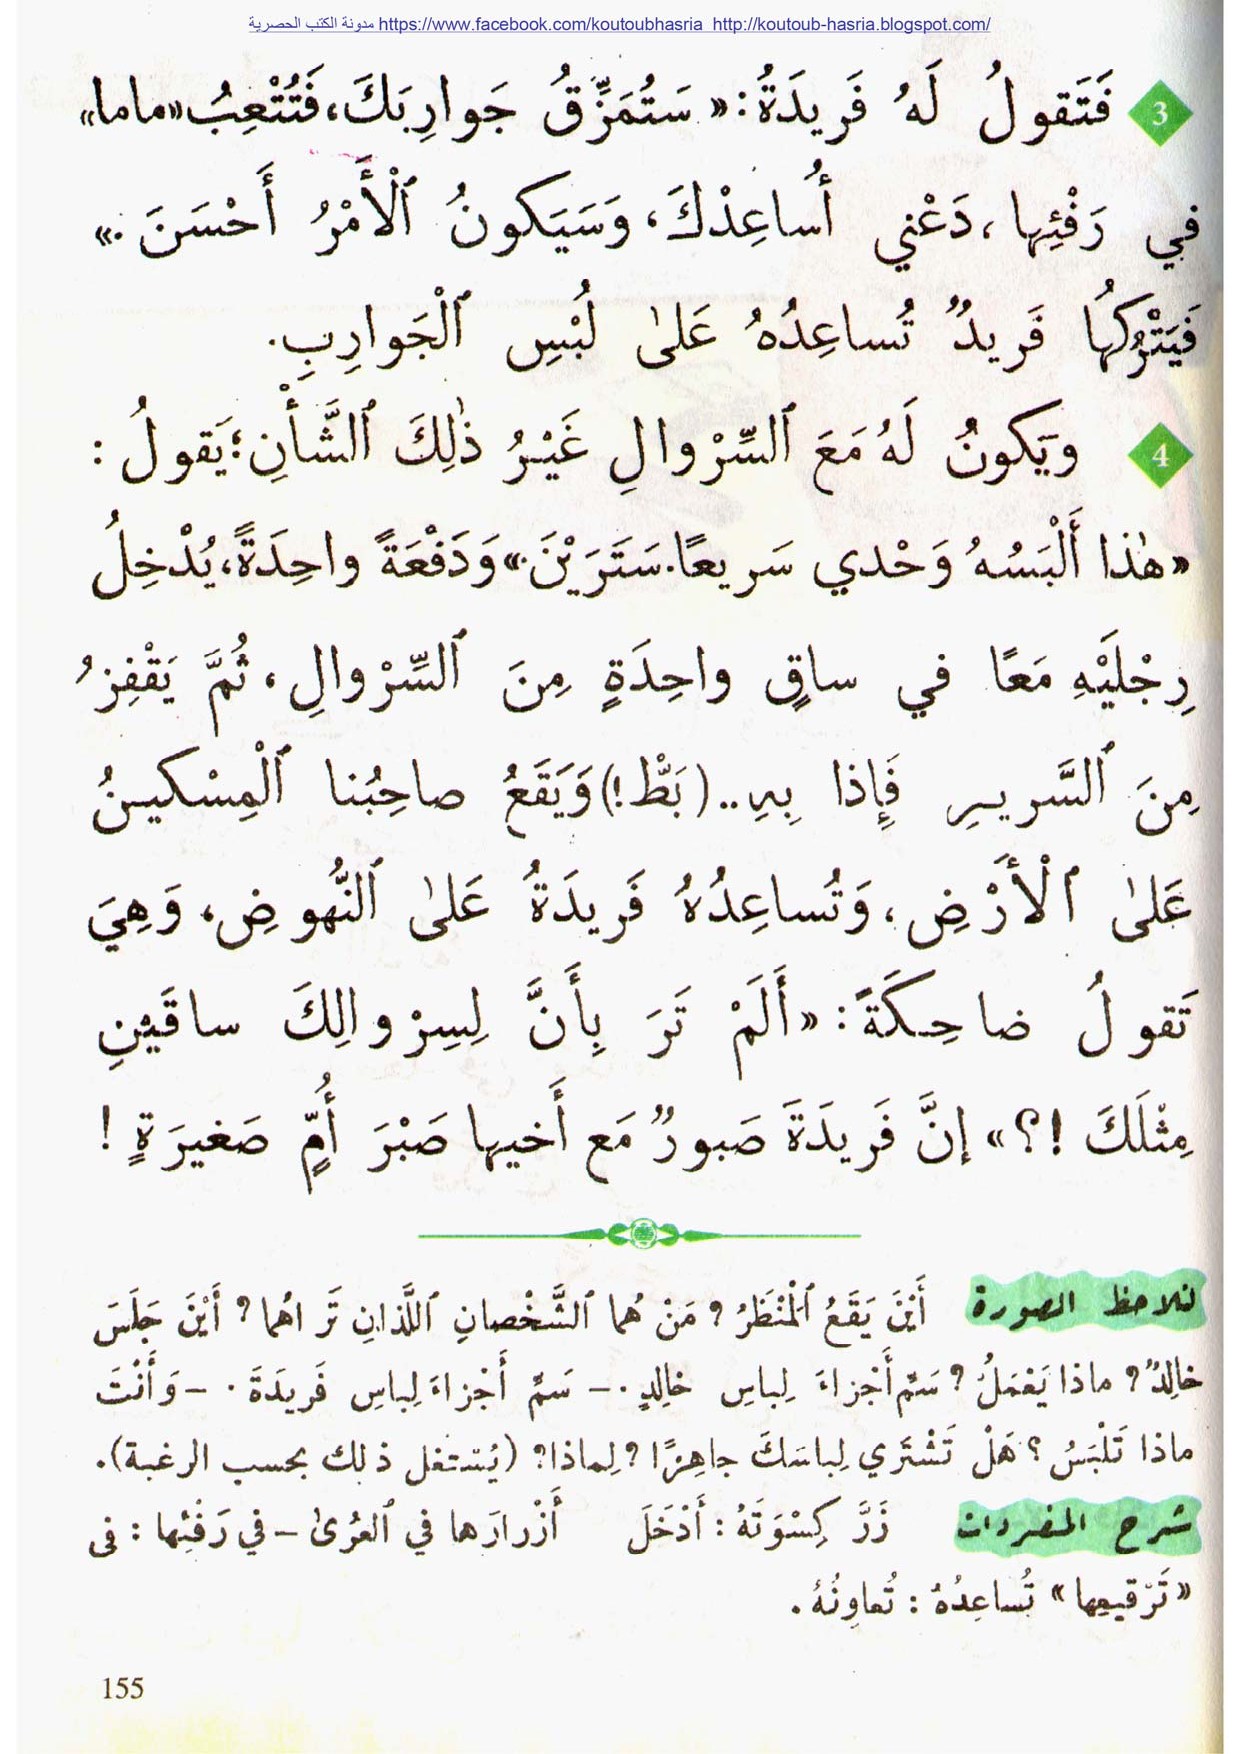 مدونة الكتب الحصرية https://www.facebook.com/koutoubhasria http://koutoub-hasria.blogspot.com/
3 فَتَقولُ لَهُ فَريدَةُ: «سَتُمَزِّقُ جَوارِبَكَ، فَتُتْعِبُ «ماما»
في رَفْئِها، دَعْني أُساعِدْكَ، وَسَيَكونُ ٱلْأَمْرُ أَحْسَنَ.»
فَيَتْرُكُها فَريدٌ تُساعِدُهُ عَلىٰ لُبْسِ ٱلْجَوارِبِ.
4 وَيَكونُ لَهُ مَعَ ٱلسِّرْوالِ غَيْرُ ذٰلِكَ ٱلشَّأْنِ؛ يَقولُ:
«هٰذا أَلْبَسُهُ وَحْدي سَريعًا. سَتَرَيْنَ.» وَدَفْعَةً واحِدَةً، يُدْخِلُ
رِجْلَيْهِ مَعًا في ساقٍ واحِدَةٍ مِنَ ٱلسِّرْوالِ، ثُمَّ يَقْفِزُ
مِنَ ٱلسَّريرِ فَإِذا بِهِ.. (بَطْ!) وَيَقَعُ صاحِبُنا ٱلْمِسْكينُ
عَلىٰ ٱلْأَرْضِ، وَتُساعِدُهُ فَريدَةُ عَلىٰ ٱلنُّهوضِ، وَهِيَ
تَقولُ ضاحِكَةً: «أَلَمْ تَرَ بِأَنَّ لِسِرْوالِكَ ساقَيْنِ
مِثْلَكَ !؟» إِنَّ فَريدَةَ صَبورٌ مَع أَخيها صَبْرَ أُمٍّ صَغيرَةٍ !
نلاحظ الصورة أَيْنَ يَقَعُ ٱلْمَنْظَرُ ؟ مَنْ هُما ٱلشَّخْصانِ ٱللَّذانِ تَراهُما ؟ أَيْنَ جَلَسَ
خالِدٌ ؟ ماذا يَعْمَلُ ؟ سَمِّ أَجْزاءَ لِباسِ خالِدٍ. – سَمِّ أَجْزاءَ لِباسِ فَريدَةَ. – وَأَنْتَ
ماذا تَلْبَسُ ؟ هَلْ تَشْتَري لِباسَكَ جاهِزًا ؟ لِماذا؟ (يُستغل ذلك بحسب الرغبة).
شرح المفردات زَرَّ كِسْوَتَهُ : أَدْخَلَ أَزْرارَها في ٱلعُرىٰ – في رَفْئِها : فى
«تَرْقيعِها» تُساعِدُهُ : تُعاوِنُهُ.
155